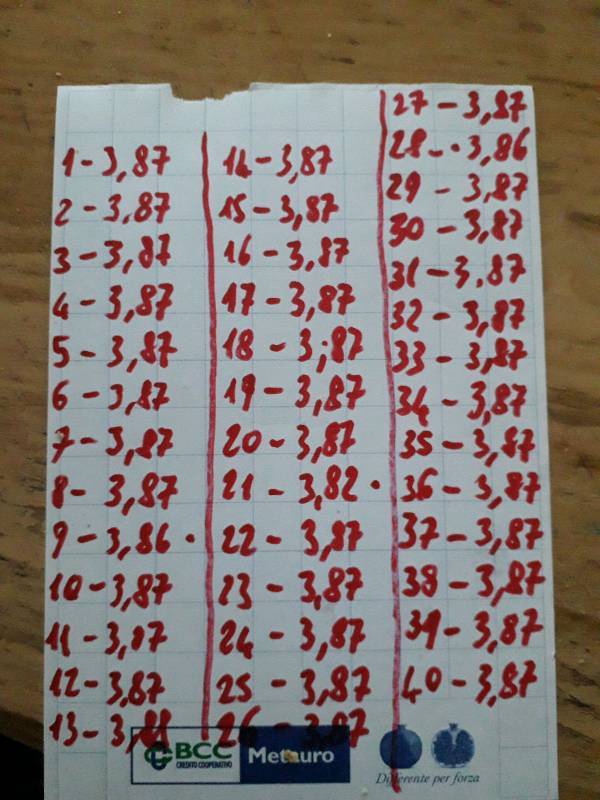 1-3,87
2-3,87
3-3,87
4-3,87
5-3,87
6-3,87
7-3,87
8-3,87
9-3,86 .
10-3,87
11-3,87
12-3,87
13-3,88
14-3,87
15-3,87
16-3,87
17-3,87
18-3,87
19-3,87
20-3,87
21-3,82 .
22-3,87
23-3,87
24-3,87
25-3,87
26-3,87
27-3,87
28-.3,86
29-3,87
30-3,87
31-3,87
32-3,87
33-3,87
34-3,87
35-3,87
36-3,87
37-3,87
38-3,87
39-3,87
40-3,87
BCC Metauro
CREDITO COOPERATIVO
Differente per forza